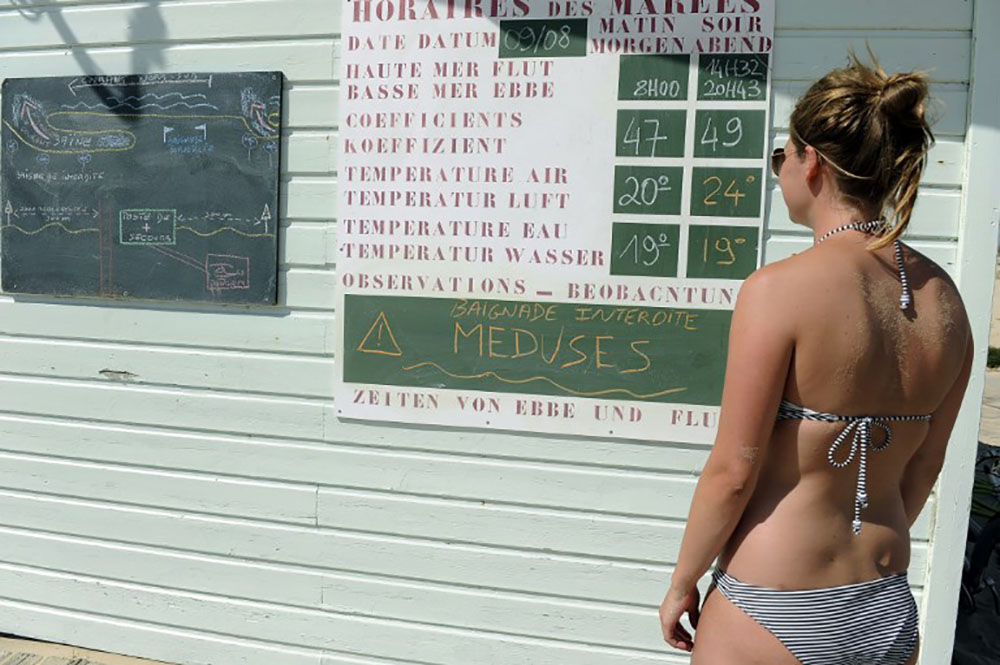 HORAIRES DES MARÉES
DATE DATUM 09/08 MATIN SOIR
MORGEN ABEND
HAUTE MER FLUT 14H32
BASSE MER EBBE 8H00 20H43
COEFFICIENTS
KOEFFIZIENT 47 49
TEMPERATURE AIR
TEMPERATUR LUFT 20° 24°
TEMPERATURE EAU
TEMPERATUR WASSER 19° 19°
OBSERVATIONS _ BEOBACNTUN
BAIGNADE INTERDITE
MEDUSES
ZEITEN VON EBBE UND FLU
BAÏNE
BAIGNADE INTERDITE
POSTE DE
+
SECOURS